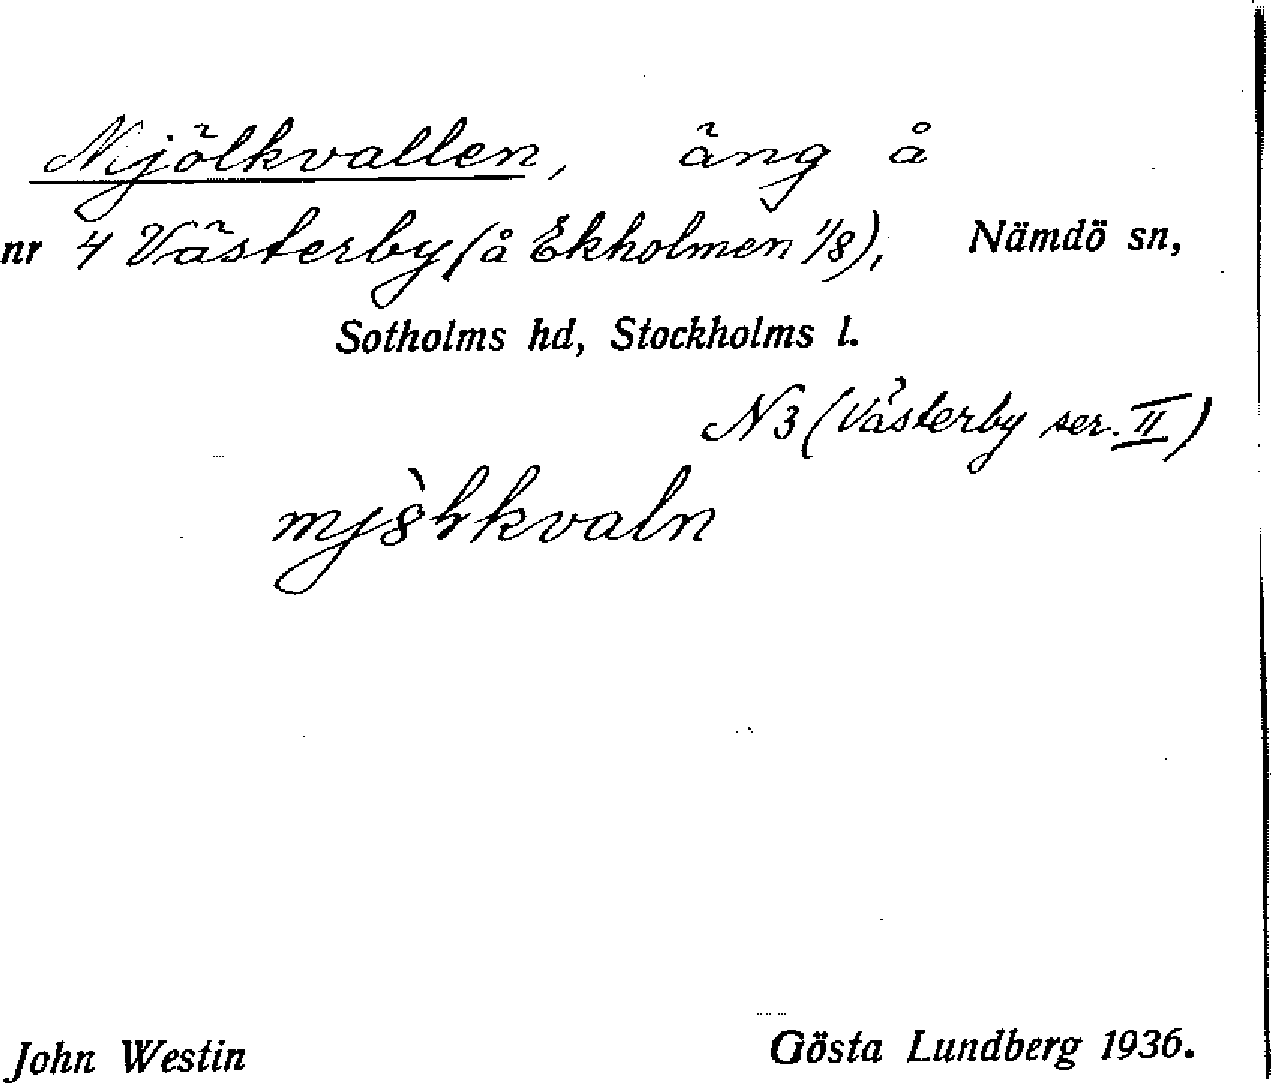 Mjölkvallen, äng å
nr 4 Västerby (å Ekholmen 1/8), Nämdö sn,
Sotholms hd, Stockholms l.
N3 (Västerby ser. II)
John Westin Gösta Lundberg 1936.